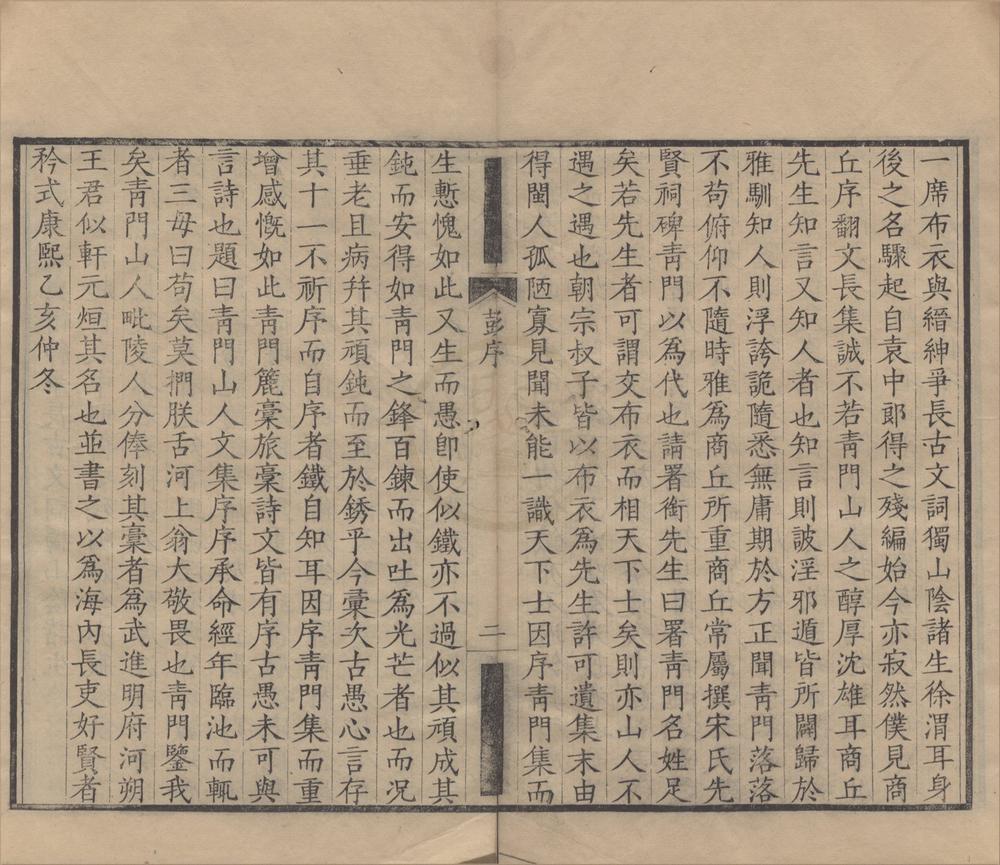 一席布衣與縉紳爭長古文詞獨山陰諸生徐渭耳身
後之名驟起自袁中郎得之殘編始今亦寂然僕見商
丘序翻文長集誠不若靑門山人之醇厚沈雄耳商丘
先生知言又知人者也知言則詖淫邪遁皆所闢歸於
雅馴知人則浮誇詭隨悉無庸期於方正聞靑門落落
不苟俯仰不隨時雅為商丘所重商丘常屬撰宋氏先
賢祠碑靑門以為代也請署銜先生曰署靑門名姓足
矣若先生者可謂交布衣而相天下士矣則亦山人不
遇之遇也朝宗叔子皆以布衣為先生許可遺集末由
得閩人孤陋寡見聞未能一識天下士因序靑門集而
彭序
二
生慙愧如此又生而愚卽使似鐵亦不過似其頑成其
鈍而安得如靑門之鋒百鍊而出吐為光芒者也而況
垂老且病幷其頑鈍而至於銹乎今彙次古愚心言存
其十一不祈序而自序者鐵自知耳因序靑門集而重
增感慨如此靑門簏稾旅稾詩文皆有序古愚未可與
言詩也題曰靑門山人文集序序承命經年臨池而輒
者三毋曰苟矣莫捫朕舌河上翁大敬畏也靑門鑒我
矣靑門山人毗陵人分俸刻其稾者為武進明府河朔
王君似軒元烜其名也並書之以為海內長吏好賢者
矜式康熙乙亥仲冬